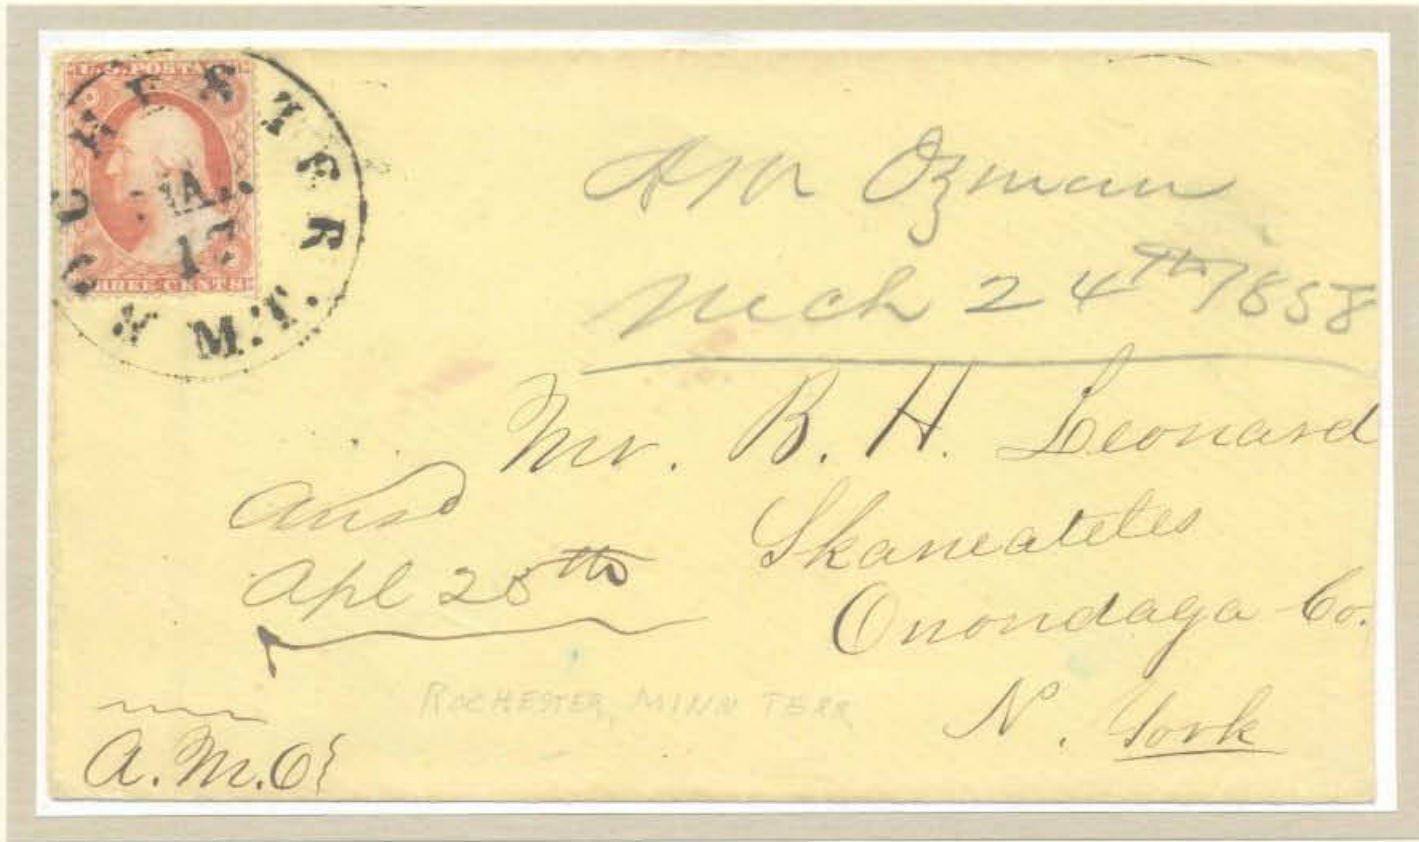 U.S. POSTAGE
ROCHESTER
MA
17
THREE CENTS
M.T.
AM Ozman
Mch 24th 1858
Mr. B. H. Leonard
Skaneateles
Onondaga Co.
N. York
ansd
Apl 25th
ROCHESTER, MINN TERR
A.M.O